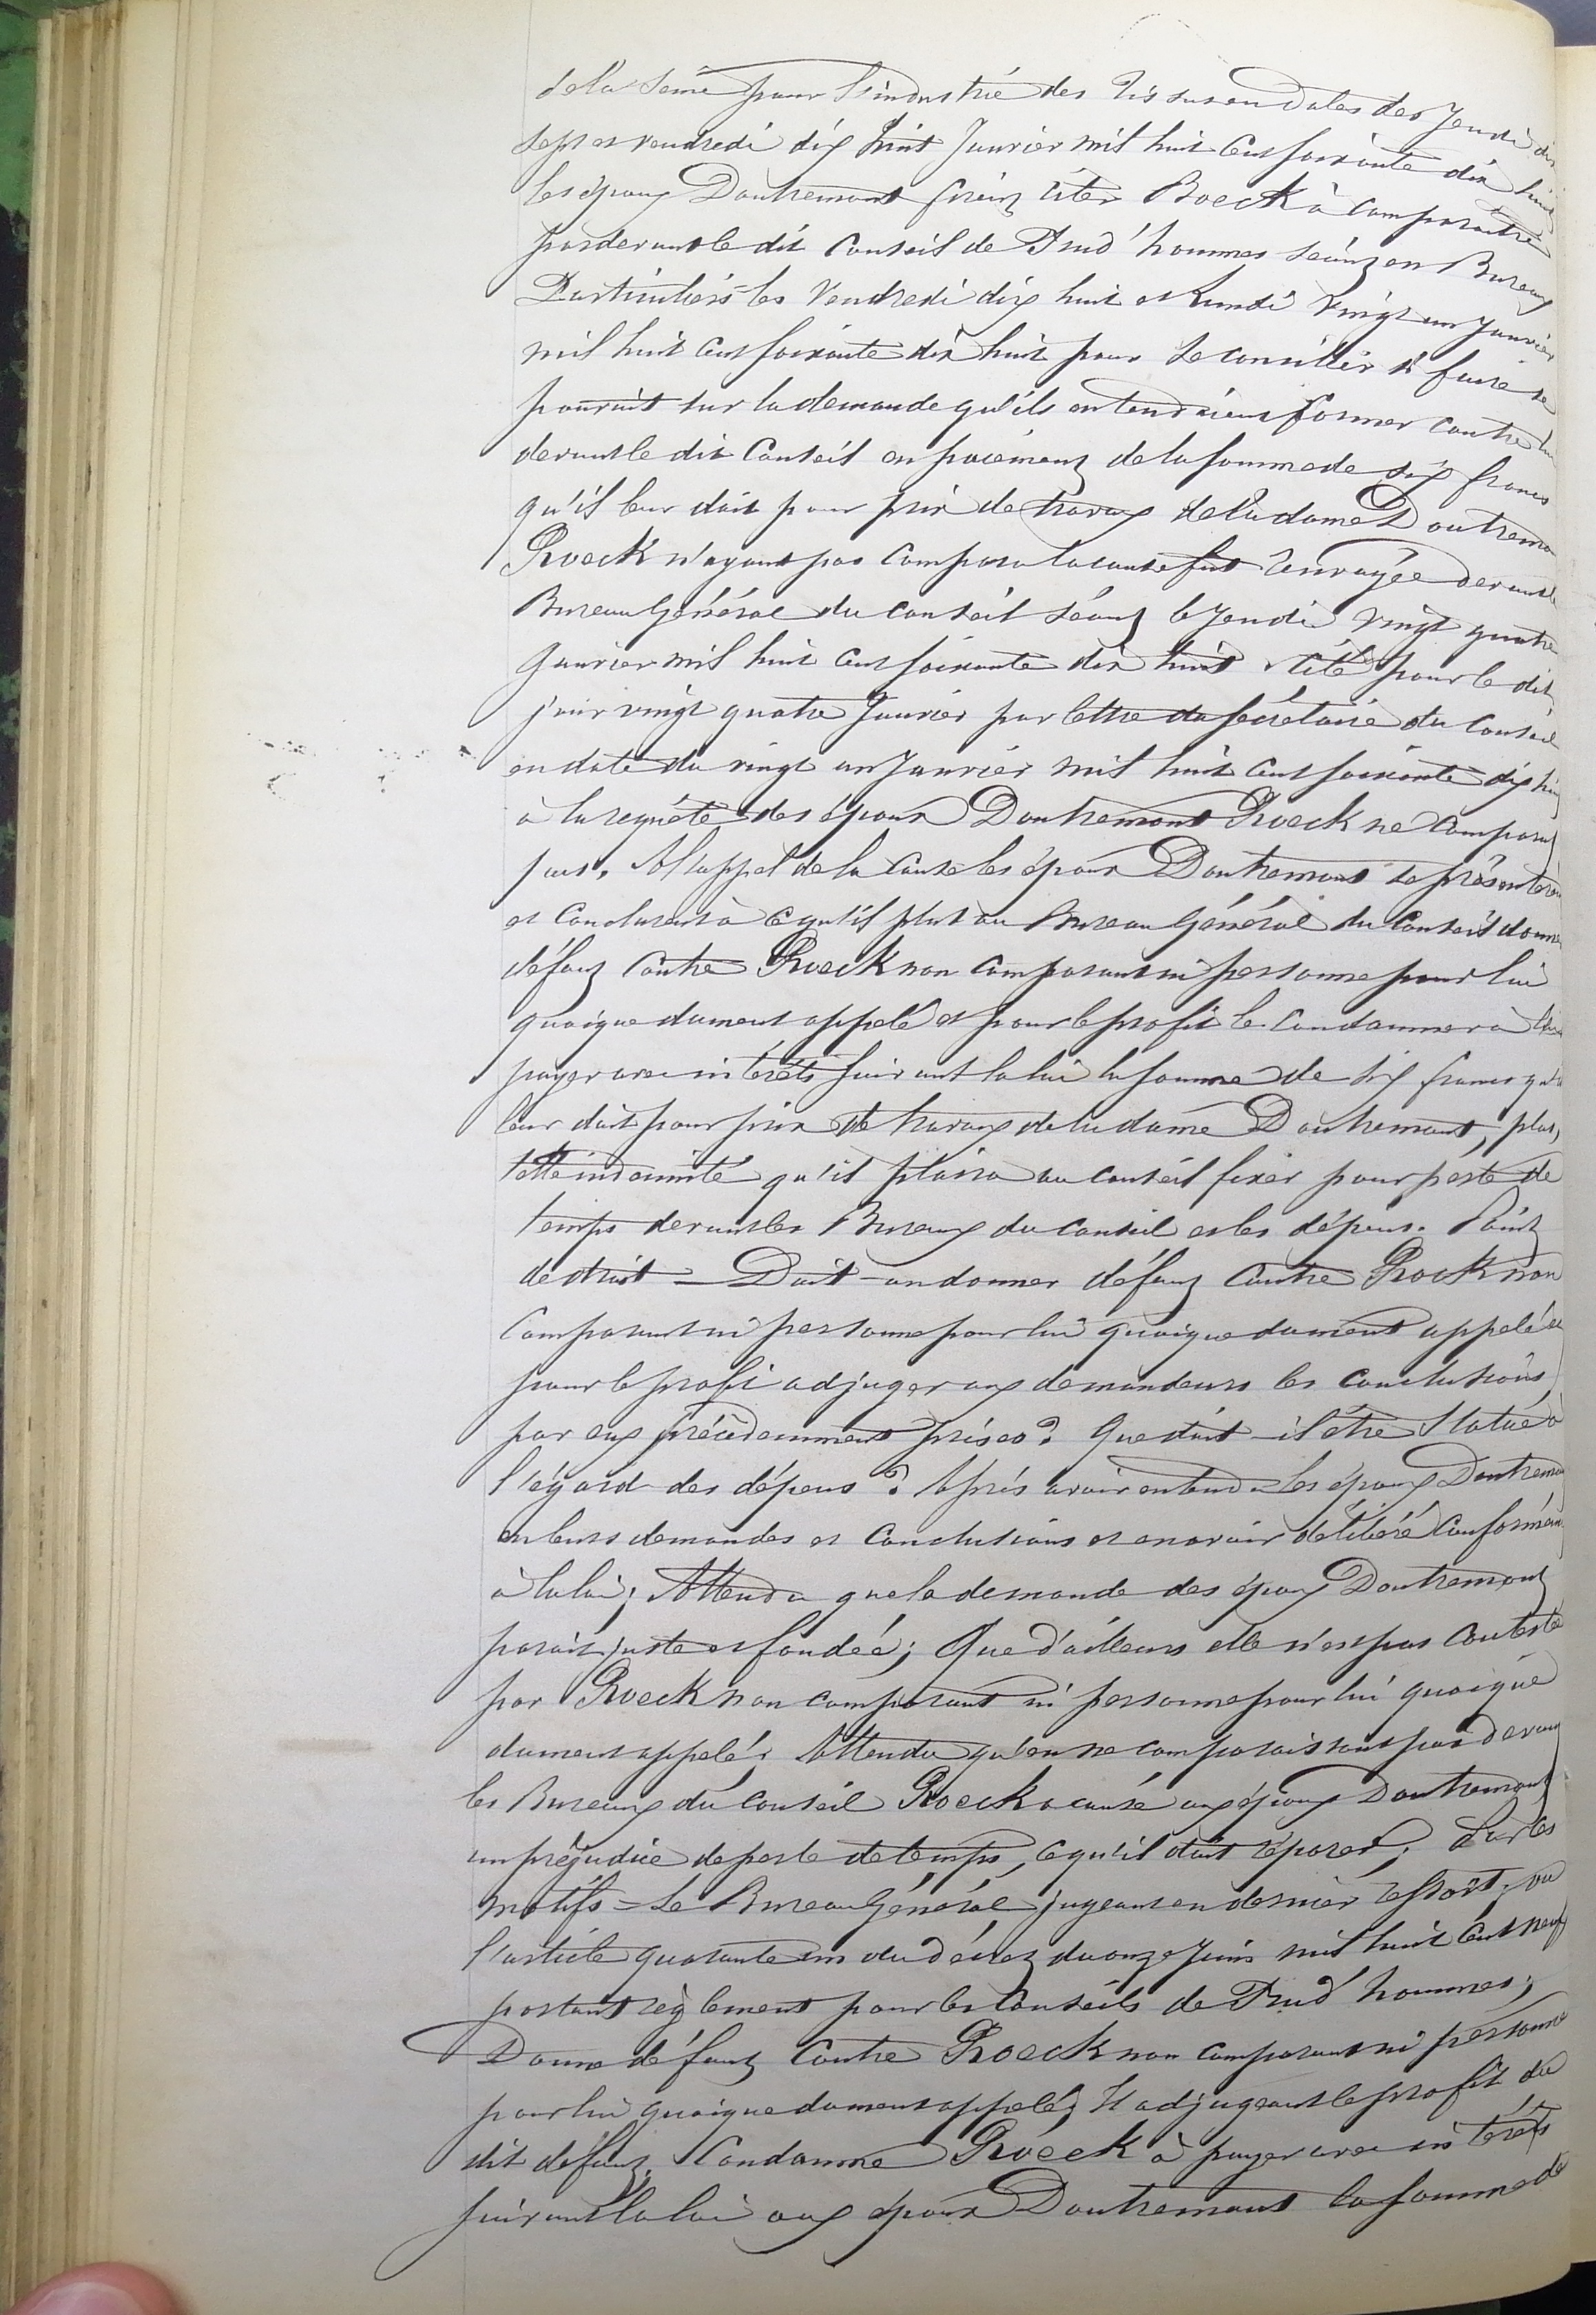 de la Seine pour l'industrie des Tissus en dates des Jeudi dix
sept et vendredi dix huit Janvier mil huit cent soixante dix huit
les époux Doutremont firent citer Roeck à comparaitre
pardevant le dit Conseil de Prud'hommes séant en Bureaux
Particuliers les Vendredi dix huit et Lundi vingt un Janvier
mil huit cent soixante dix huit pour se concilier si faire se
pouvait sur la demande qu'ils entendaient former contre lui
devant le dit Conseil en paiement de la somme de six francs
qu'il leur doit pour prix de travaux de la dame Doutremont
Roeck n'ayant pas comparu la cause fut renvoyée devant le
Bureau Général du Conseil séant le Jeudi vingt quatre
Janvier mil huit cent soixante dix huit. Cité pour le dit
jour vingt quatre Janvier par lettre du secrétaire du Conseil
en date du vingt un Janvier mil huit cent soixante dix huit
à la requête des époux Doutremont Roeck ne comparut
pas. A l'appel de la cause les époux Doutremont se présentèrent
et conclurent à ce qu'il plut au Bureau Général du Conseil donner
défaut contre Roeck non comparant ni personne pour lui
quoique dument appelé et pour le profit le condamner à leur
payer avec intérêts suivant la loi la somme de six francs qu'il
leur doit pour prix de travaux de la dame Doutremont, plus,
telle indemnité qu'il plaira au Conseil fixer pour perte de
temps devant les Bureaux du Conseil et les dépens. Point
de droit – Doit-on donner défaut contre Roeck non
comparant ni personne pour lui quoique dument appelé et
pour le profit adjuger aux demandeurs les conclusions
par eux précédemment prises? Que doit-il être statué à
l'égard des dépens? Après avoir entendu les époux Doutremont
en leurs demandes et conclusions et en avoir délibéré conformément
à la loi; Attendu que la demande des époux Doutremont
parait juste et fondée; Que d'ailleurs elle n'est pas contestée
par Roeck non comparant ni personne pour lui quoique
dument appelé; Attendu qu'en ne comparaissant pas devant
les Bureaux du Conseil Roeck a causé aux époux Doutremont
un préjudice de perte de temps, ce qu'il doit réparer; Par ces
motifs – Le Bureau Général jugeant en dernier ressort; vu
l'article quarante un du décret du onze Juin mil huit cent neuf
portant règlement pour les Conseils de Prud'hommes;
Donne défaut contre Roeck non comparant ni personne
pour lui quoique dument appelé; Et adjugeant le profit du
dit défaut, Condamne Roeck à payer avec intérêts
suivant la loi aux époux Doutremont la somme de